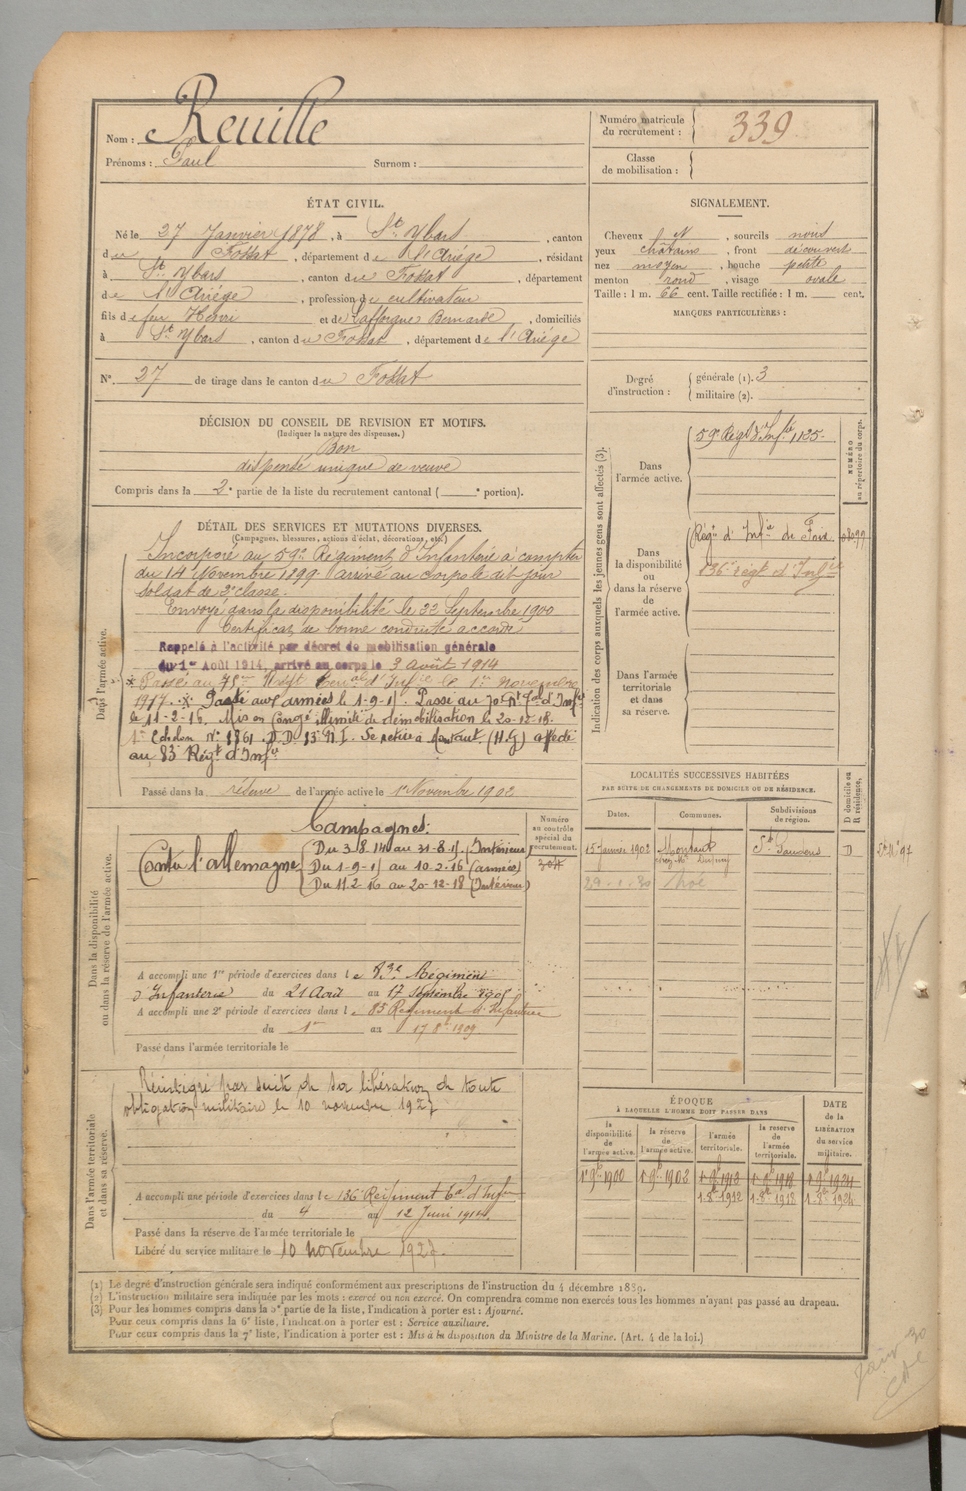 Nom : Reuille
Prénoms : Paul Surnom :
Numéro matricule du recrutement : 339
Classe de mobilisation :
ÉTAT CIVIL.
Né le 27 Janvier 1878, à St Ybars, canton
du Fossat, département de l'Ariège, résidant
à St Ybars, canton du Fossat, département
de l'Ariège, profession de cultivateur
fils de feu Henri et de Lafforgue Bernarde, domiciliés
à St Ybars, canton du Fossat, département de l'Ariège
N° 27 de tirage dans le canton du Fossat
SIGNALEMENT.
Cheveux N, sourcils noirs
yeux châtains, front découvert
nez moyen, bouche petite
menton rond, visage ovale
Taille : 1 m. 66 cent. Taille rectifiée : 1 m. cent.
MARQUES PARTICULIÈRES :
Degré d'instruction : générale (1). 3
militaire (2).
DÉCISION DU CONSEIL DE REVISION ET MOTIFS.
(Indiquer la nature des dispenses.)
Bon
dispensé unique de veuve
Compris dans la 2e partie de la liste du recrutement cantonal ( e portion).
DÉTAIL DES SERVICES ET MUTATIONS DIVERSES.
(Campagnes, blessures, actions d'éclat, décorations, etc.)
Dans l'armée active.
Incorporé au 59e Régiment d'Infanterie à compter
du 14 Novembre 1899. arrivé au corps le dit jour
soldat de 2e classe.
Envoyé dans la disponibilité le 22 Septembre 1900
Certificat de bonne conduite accordé
Rappelé à l'activité par décret de mobilisation générale
du 1er Août 1914, arrivé au corps le 3 août 1914
le 1er novembre
1917. Passé aux armées le 1-9-15. Passé au
le 11-2-16. Mis en Congé illimité de démobilisation le 20-12-18.
1er Echelon N° 1861 Se retire à Montaut (H.G) affecté
au 83 Régt d'Infie
Passé dans la réserve de l'armée active le 1er Novembre 1902
Indication des corps auxquels les jeunes gens sont affectés (3).
NUMÉRO au répertoire du corps.
Dans l'armée active.
59e Régt d'Infie 1125.
Dans la disponibilité ou dans la réserve de l'armée active.
Régt d'Infie de Foix
136e régt d'Infie
Dans l'armée territoriale et dans sa réserve.
LOCALITÉS SUCCESSIVES HABITÉES
PAR SUITE DE CHANGEMENTS DE DOMICILE OU DE RÉSIDENCE.
D domicile ou R résidence.
Dates. Communes. Subdivisions de région.
15 Janvier 1902 Montaut St Gaudens D
29-1-30 Noé
Dans la disponibilité ou dans la réserve de l'armée active.
Numéro au contrôle spécial du recrutement.
Campagnes :
Contre l'allemagne
Du 3.8.14 au 31-8-15 (Intérieur)
Du 1-9-15 au 10-2-16 (armées)
Du 11.2 16 au 20-12-18 (Intérieur)
A accompli une 1re période d'exercices dans le 83e Régiment
d'Infanterie du 21 Août au 17 Septembre 1905
A accompli une 2e période d'exercices dans le 83 Régiment d'Infanterie
du 1er au 17 8bre 1909
Passé dans l'armée territoriale le
Dans l'armée territoriale et dans sa réserve.
Réintégré par suite de sa libération de toute
obligation militaire le 10 novembre 1927
A accompli une période d'exercices dans le 136e Régiment Tal d'Infie
du 4 au 12 Juin 1914.
Passé dans la réserve de l'armée territoriale le
Libéré du service militaire le 10 novembre 1927.
ÉPOQUE
À LAQUELLE L'HOMME DOIT PASSER DANS
DATE de la LIBÉRATION du service militaire.
la disponibilité de l'armée active. la réserve de l'armée active. l'armée territoriale. la réserve de l'armée territoriale.
1er 9bre 1900 1er 9bre 1902 1er 9bre 1912 1er 9bre 1918 1er 9bre 1924
1-8bre 1912 1-8bre 1918 1-8bre 1924
(1) Le degré d'instruction générale sera indiqué conformément aux prescriptions de l'instruction du 4 décembre 1889.
(2) L'instruction militaire sera indiquée par les mots : exercé ou non exercé. On comprendra comme non exercés tous les hommes n'ayant pas passé au drapeau.
(3) Pour les hommes compris dans la 5e partie de la liste, l'indication à porter est : Ajourné.
Pour ceux compris dans la 6e liste, l'indication à porter est : Service auxiliaire.
Pour ceux compris dans la 7e liste, l'indication à porter est : Mis à la disposition du Ministre de la Marine. (Art. 4 de la loi.)